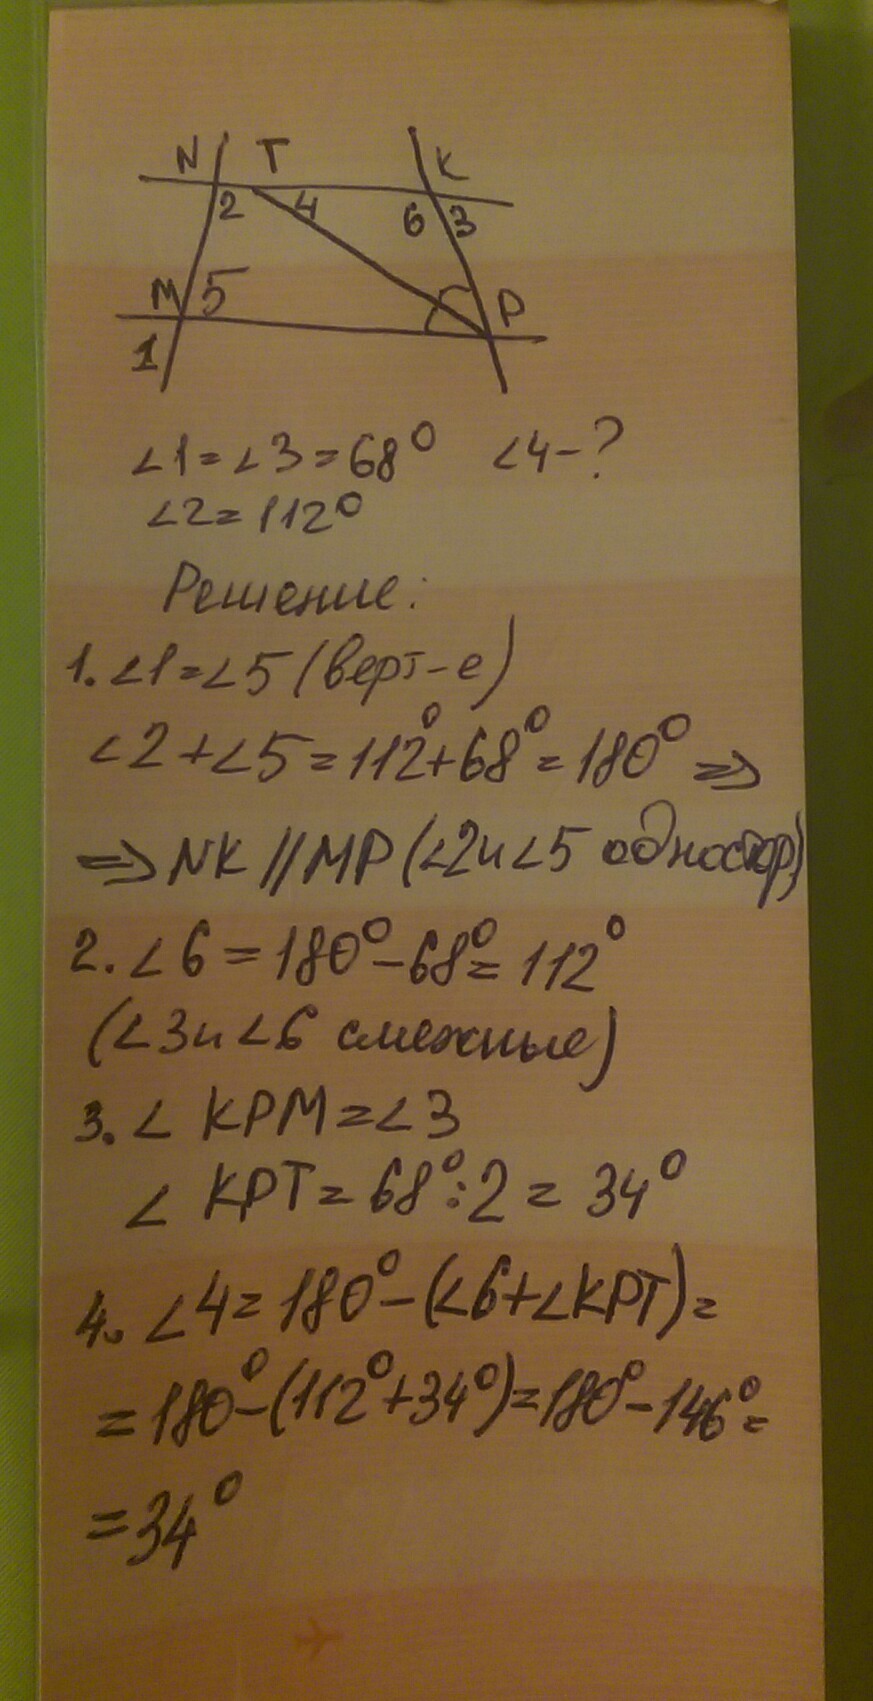 N T K
2 4 6 3
M 5 P
1
∠1=∠3=68° ∠4-?
∠2=112°
Решение:
1. ∠1=∠5 (верт-е)
∠2+∠5=112°+68°=180° =>
=> NK//MP (∠2и∠5 одностор)
2. ∠6=180°-68°=112°
(∠3и∠6 смежные)
3. ∠ KPM=∠3
∠ KPT=68°:2=34°
4. ∠4=180°-(∠6+∠KPT)=
=180°-(112°+34°)=180°-146°=
=34°